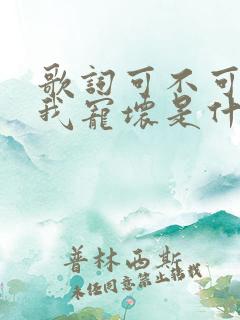 歌词可不可
我宠坏是什
普林西斯
未经同意禁止转载